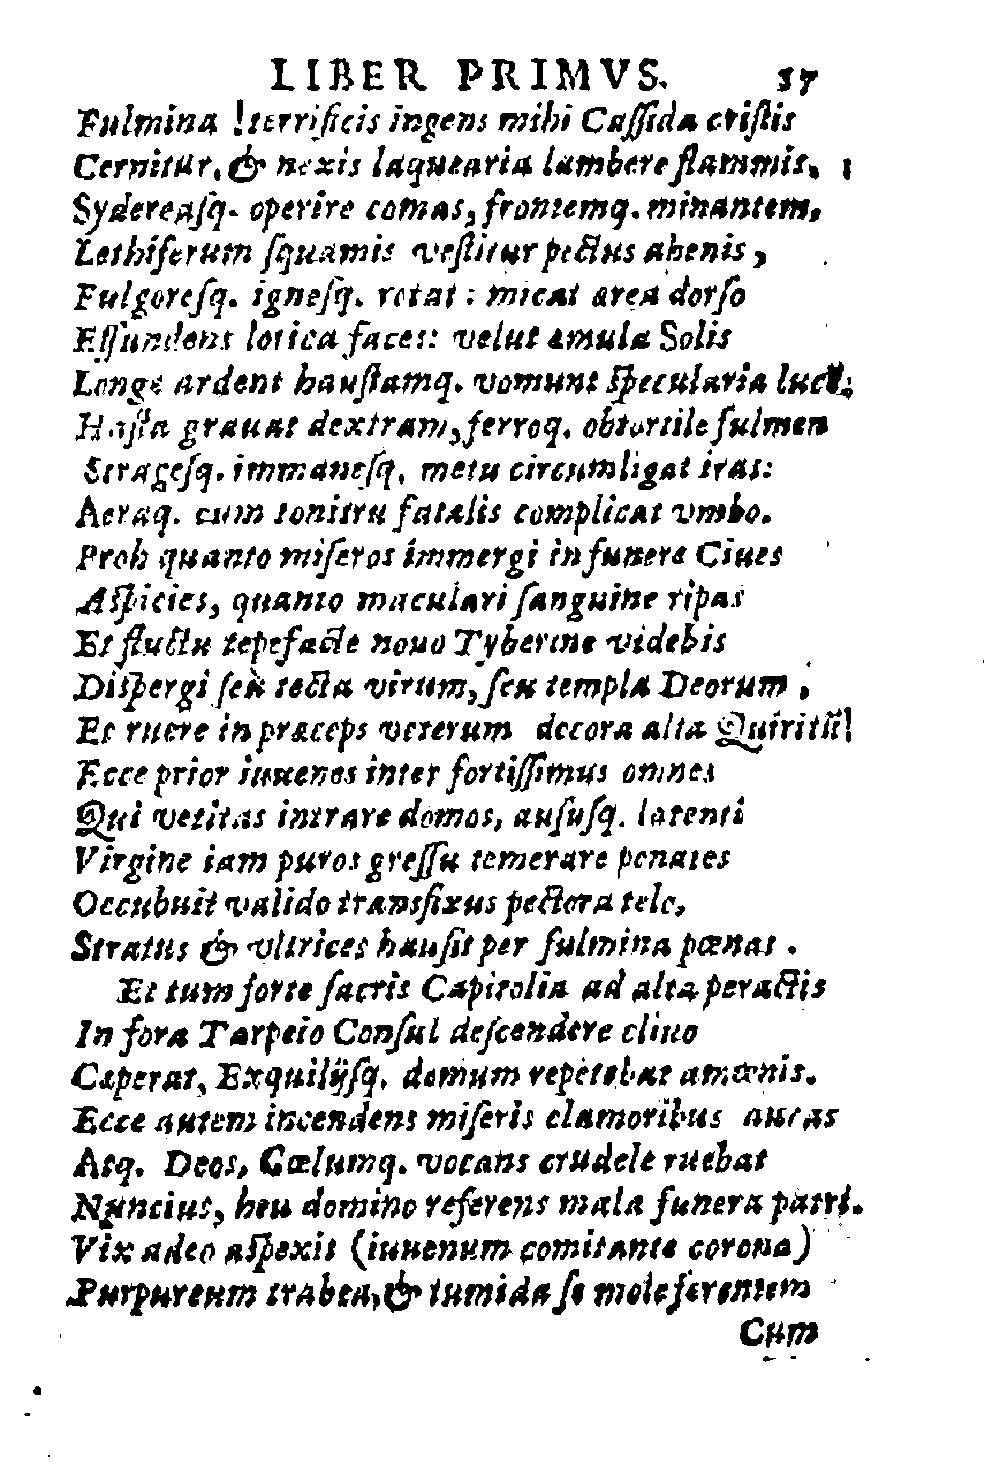 LIBER PRIMVS. 57
Fulmina! terrificis ingens mihi Caſſida criſtis
Cernitur, & nexis laquearia lambere flammis,
Sydereaſq. operire comas, frontemq. minantem,
Lethiferum ſquamis veſtitur pectus ahenis,
Fulgoreſq. igneſq. rotat: micat area dorſo
Effundens lorica faces: velut æmula Solis
Longe ardent hauſtamq. vomunt ſpecularia lucē;
Haſta grauat dextram, ferroq. obtortile fulmen
Strageſq. immaneſq. metu circumligat iras:
Aeraq. cum tonitru fatalis complicat vmbo.
Proh quanto miſeros immergi in funere Ciues
Aſpicies, quanto maculari ſanguine ripas
Et fluctu tepefacte nouo Tyberine videbis
Diſpergi ſeù tecta virum, ſeu templa Deorum,
Et ruere in præceps veterum decora alta Quiritū!
Ecce prior iuuenes inter fortiſſimus omnes
Qui vetitas intrare domos, auſuſq. latenti
Virgine iam puros greſſu temerare penates
Occubuit valido transfixus pectora telo,
Stratus & vltrices hauſit per fulmina pœnas.
Et tum forte ſacris Capitolia ad alta peractis
In fora Tarpeio Conſul deſcendere cliuo
Cæperat, Exquilijſq. domum repetebat amœnis.
Ecce autem incendens miſeris clamoribus auras
Atq. Deos, Cœlumq. vocans crudele ruebat
Nuncius, heu domino referens mala funera patri.
Vix adeo aſpexit (iuuenum comitante corona)
Purpureum trabea, & tumida ſe mole ferentem
Cum